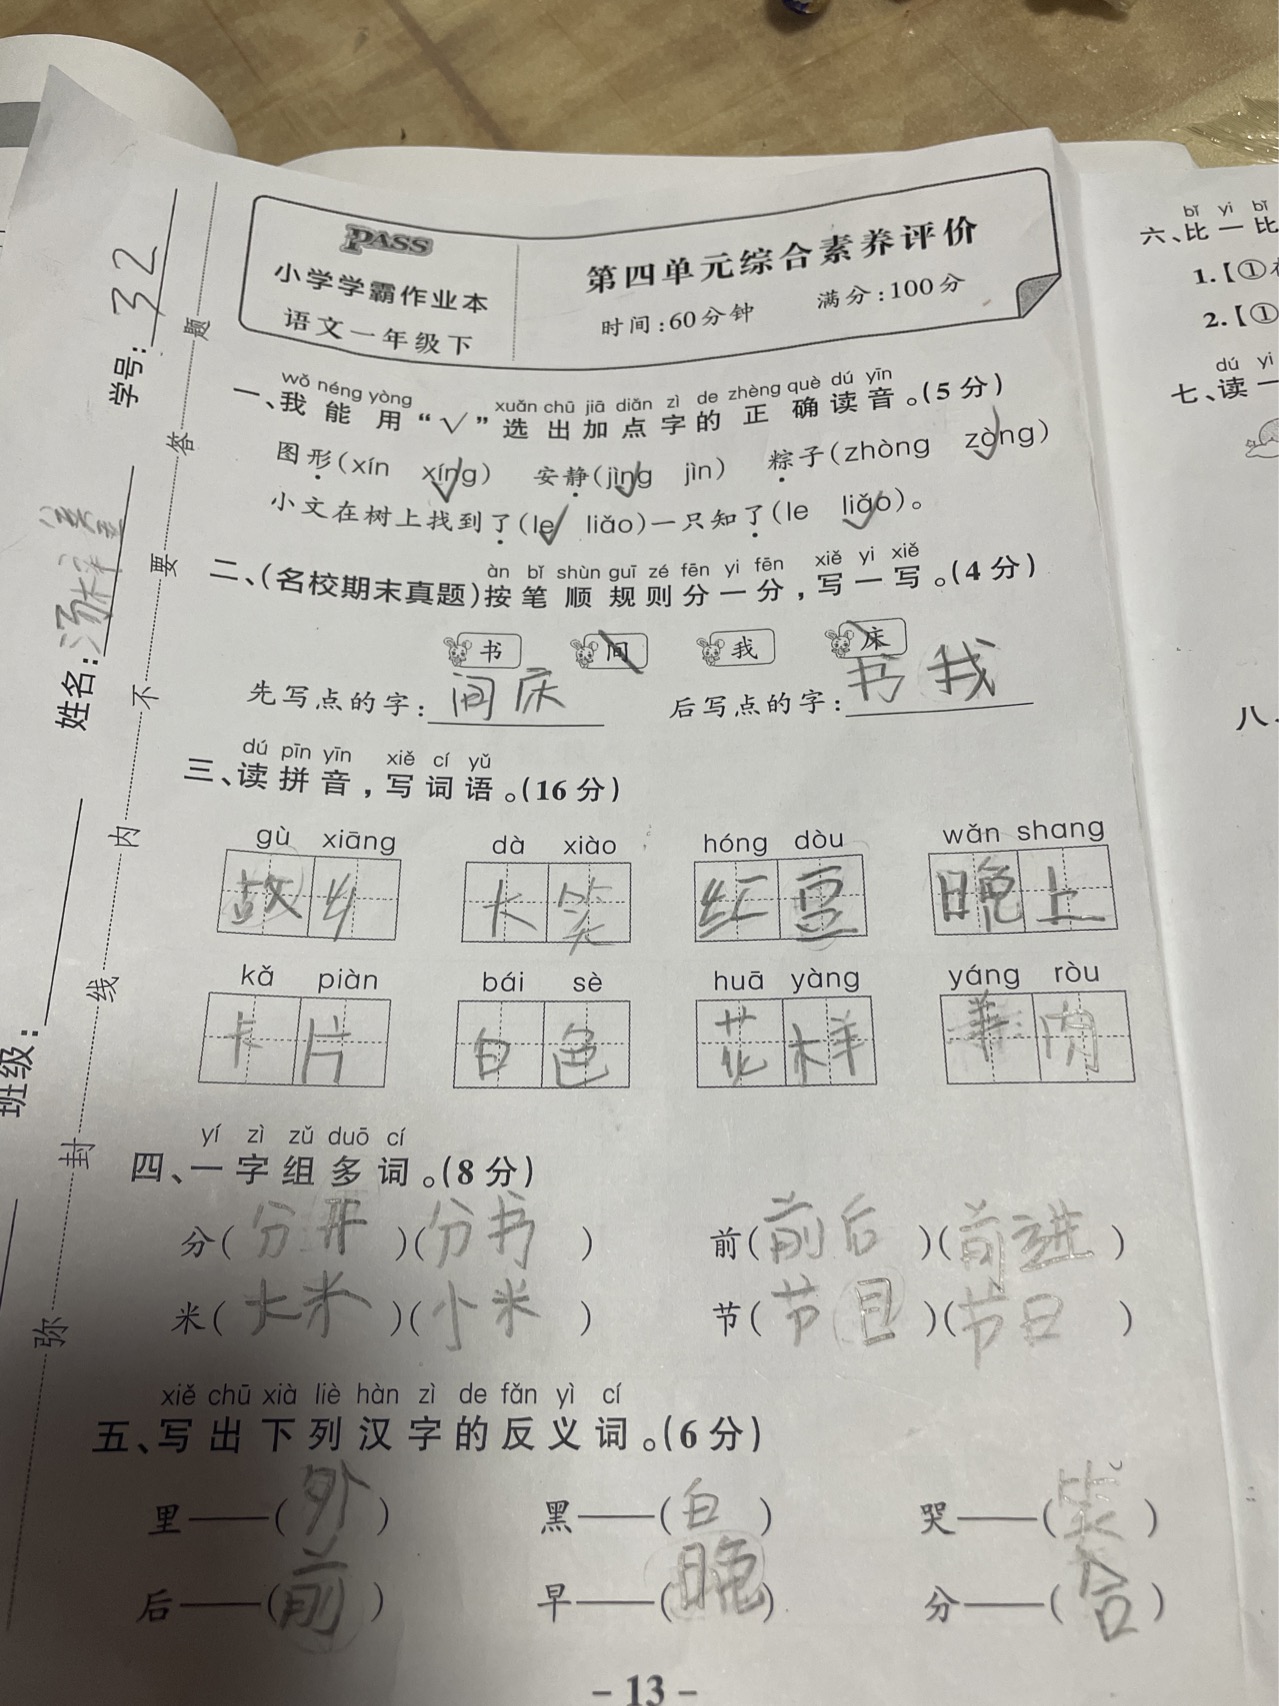 PASS
小学学霸作业本
语文一年级下
第四单元综合素养评价
时间:60分钟 满分:100分
学号: 32
姓名:
班级:
弥 封 线 内 不 要 答 题
wǒ néng yòng xuǎn chū jiā diǎn zì de zhèng què dú yīn
一、我能用“√”选出加点字的正确读音。(5分)
图形(xín xíng√) 安静(jìng√ jìn) 粽子(zhòng zòng√)
小文在树上找到了(le√ liǎo)一只知了(le liǎo√)。
àn bǐ shùn guī zé fēn yi fēn xiě yi xiě
二、(名校期末真题)按笔顺规则分一分,写一写。(4分)
书 间 我 床
先写点的字: 间 床 后写点的字: 书 我
dú pīn yīn xiě cí yǔ
三、读拼音,写词语。(16分)
gù xiāng dà xiào hóng dòu wǎn shang
故乡 大笑 红豆 晚上
kǎ piàn bái sè huā yàng yáng ròu
卡片 白色 花样 羊肉
yí zì zǔ duō cí
四、一字组多词。(8分)
分(分开)(分书) 前(前后)(前进)
米(大米)(小米) 节(节目)(节日)
xiě chū xià liè hàn zì de fǎn yì cí
五、写出下列汉字的反义词。(6分)
里——(外) 黑——(白) 哭——(笑)
后——(前) 早——(晚) 分——(合)
- 13 -
bǐ yi bǐ
六、比一比
1.【①
2.【①
dú yi
七、读一
八、